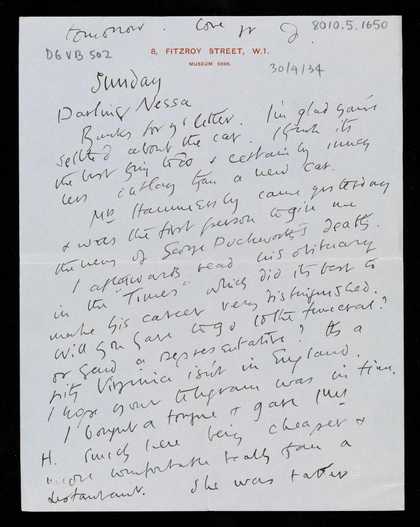 tomorrow. Love yr D.
8010.5.1650
DGVB 502
8, FITZROY STREET, W.1.
MUSEUM
30/4/34
Sunday
Darling Nessa
Thanks for yr letter. I'm glad you've
settled about the car. I think its
the best thing to do & certainly much
less outlay than a new car.
Mrs Hammersley came yesterday
& was the first person to give me
the news of George Duckworth's death.
I afterwards read his obituary
in the "Times" which did its best to
make his career very distinguished.
Will you have to go to the funeral?
or send a representative? Its a
pity Virginia isn't in England.
I hope your telegram was in time.
I bought a tongue & gave Mrs
H. lunch here being cheaper &
more comfortable really than a
restaurant. She was rather